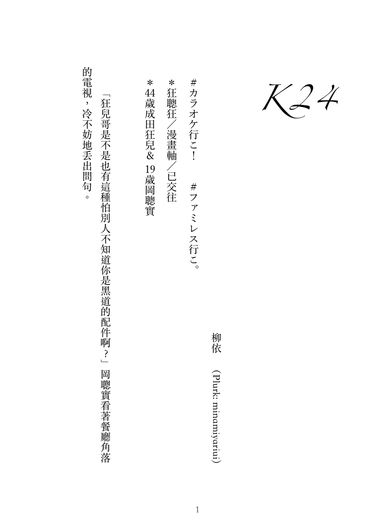 K24
柳依　（Plurk: minamiyariui）
＃カラオケ行こ！　＃ファミレス行こ。
＊狂聰狂／漫畫軸／已交往
＊44歲成田狂兒＆ 19歲岡聰實
「狂兒哥是不是也有這種怕別人不知道你是黑道的配件啊？」岡聰實看著餐廳角落
的電視，冷不妨地丟出問句。
1